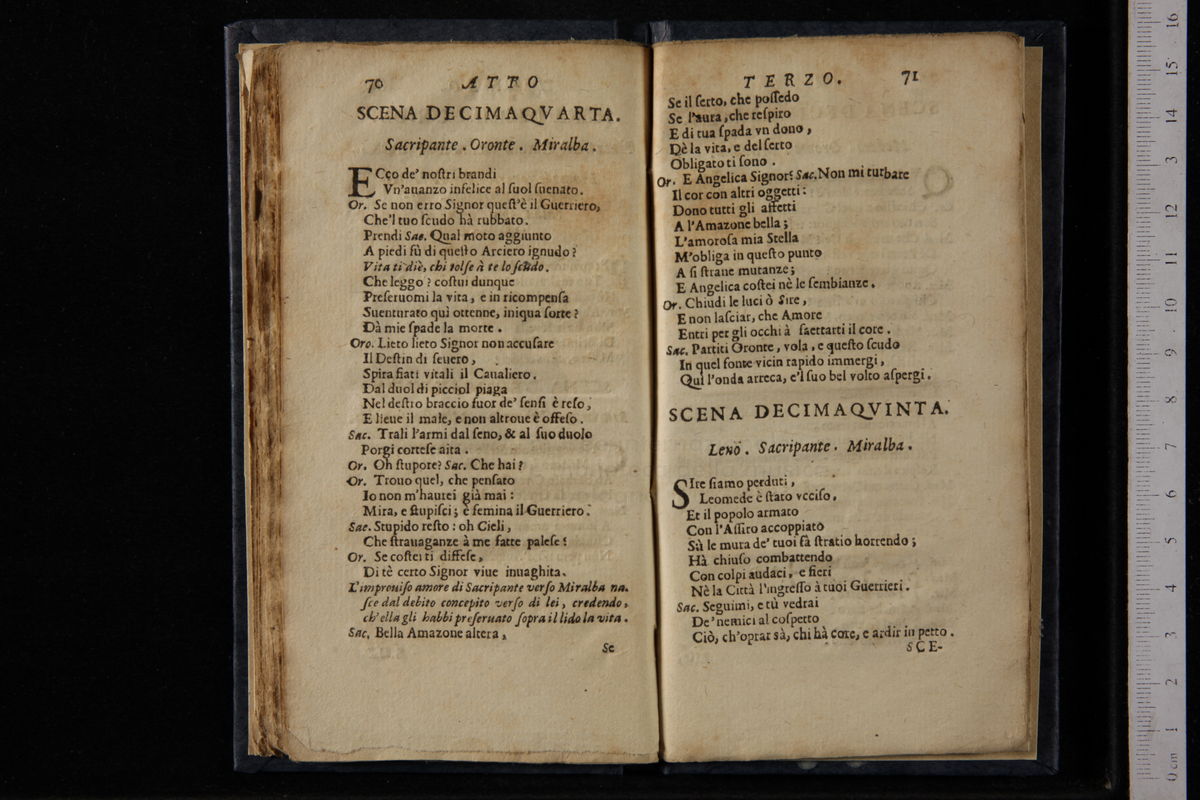 70 ATTO
SCENA DECIMAQVARTA.
Sacripante. Oronte. Miralba.
ECco de' noſtri brandi
Vn'auanzo infelice al ſuol ſuenato.
Or. Se non erro Signor queſt'è il Guerriero,
Che'l tuo ſcudo hà rubbato.
Prendi Sac. Qual moto aggiunto
A piedi sù di queſto Arciero ignudo?
Vita ti diè, chi tolſe à te lo ſcudo.
Che leggo? coſtui dunque
Preſeruomi la vita, e in ricompenſa
Suenturato quì ottenne, iniqua ſorte?
Dà mie ſpade la morte.
Oro. Lieto lieto Signor non accuſare
Il Deſtin di ſeuero,
Spira fiati vitali il Caualiero.
Dal duol di picciol piaga
Nel deſtro braccio fuor de' ſenſi è reſo,
E lieue il male, e non altroue è offeſo.
Sac. Trali l'armi dal ſeno, & al ſuo duolo
Porgi corteſe aita.
Or. Oh ſtupore? Sac. Che hai?
Or. Trouo quel, che penſato
Io non m'haurei già mai:
Mira, e ſtupiſci; è femina il Guerriero.
Sac. Stupido reſto: oh Cieli,
Che ſtrauaganze à me fatte paleſe?
Or. Se coſtei ti diffeſe,
Di tè certo Signor viue inuaghita.
L'improuiſo amore di Sacripante verſo Miralba na.
ſce dal debito concepito verſo di lei, credendo,
ch'ella gli habbi preſeruato ſopra il lido la vita.
Sac. Bella Amazone altera,
Se
TERZO. 71
Se il ſerto, che poſſedo
Se l'aura, che reſpiro
E di tua ſpada vn dono,
Dè la vita, e del ſerto
Obligato ti ſono.
Or. E Angelica Signor? Sac. Non mi turbare
Il cor con altri oggetti:
Dono tutti gli affetti
A l'Amazone bella;
L'amoroſa mia Stella
M'obliga in queſto punto
A ſi ſtrane mutanze;
E Angelica coſtei nè le ſembianze.
Or. Chiudi le luci ò Sire,
E non laſciar, che Amore
Entri per gli occhi à ſaettarti il core.
Sac. Partiti Oronte, vola, e queſto ſcudo
In quel fonte vicin rapido immergi,
Quì l'onda arreca, e'l ſuo bel volto aſpergi.
SCENA DECIMAQVINTA.
Leno. Sacripante. Miralba.
SIre ſiamo perduti,
Leomede è ſtato vcciſo,
Et il popolo armato
Con l'Aſſiro accoppiato
Sù le mura de' tuoi fà ſtratio horrendo;
Hà chiuſo combattendo
Con colpi audaci, e fieri
Nè la Città l'ingreſſo à tuoi Guerrieri.
Sac. Seguimi, e tù vedrai
De' nemici al coſpetto
Ciò, ch'oprar sà, chi hà core, e ardir in petto.
SCE-